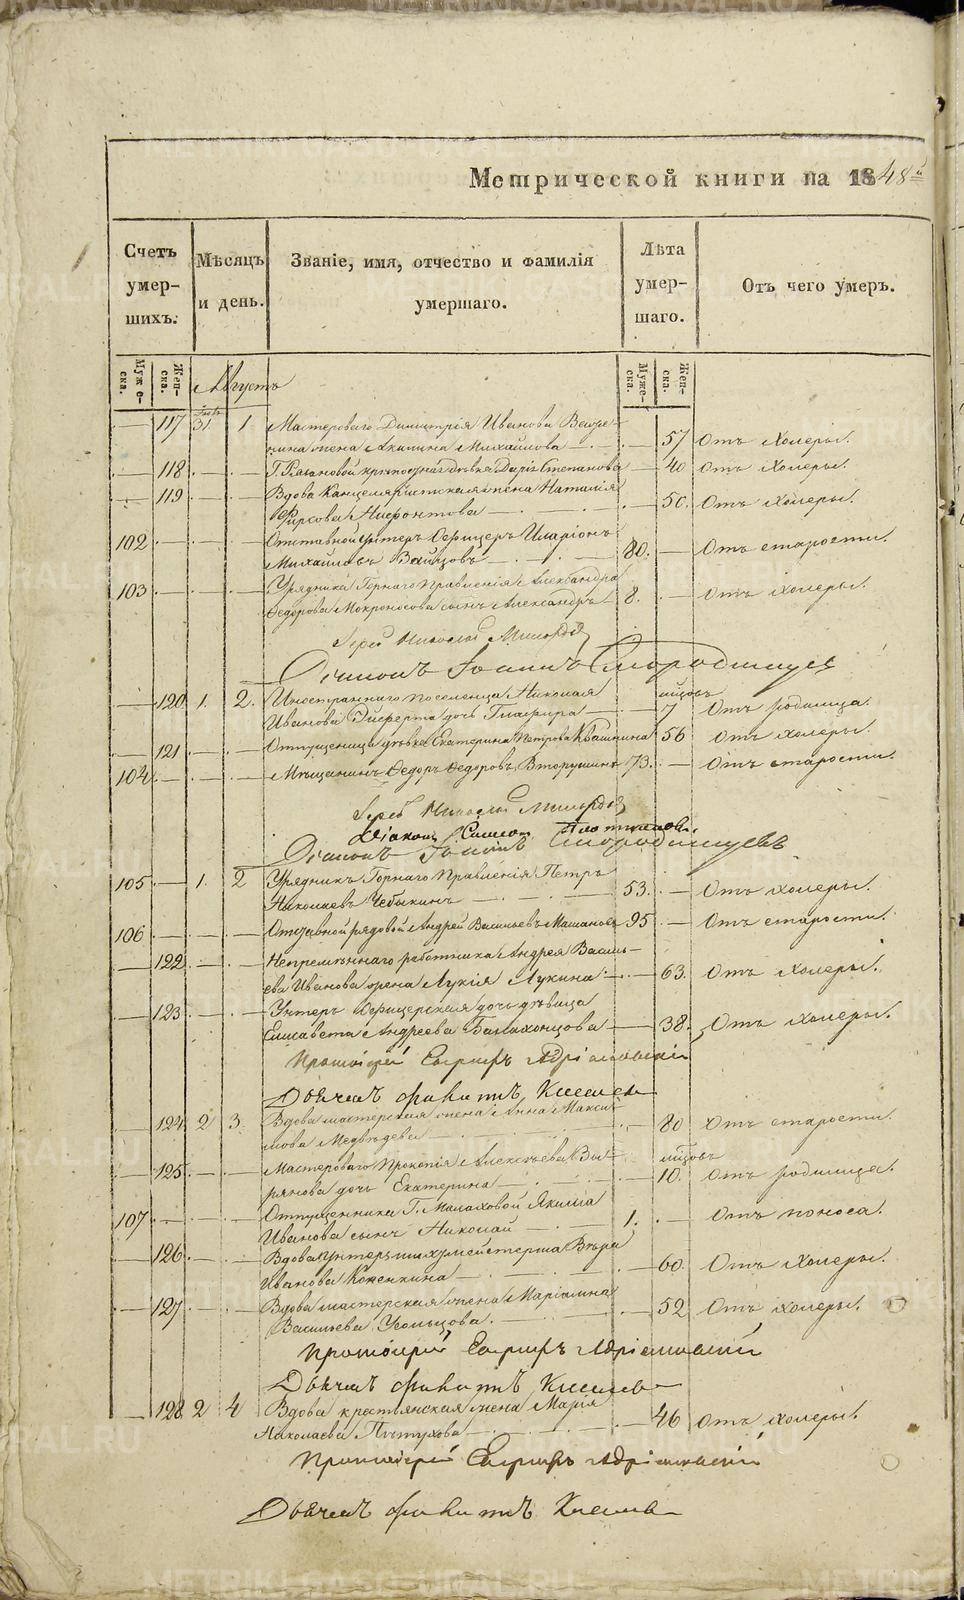 Метрической книги на 1848й
Счетъ умерших.
Мѣсяцъ и день.
Званіе, имя, отчество и фамилія умершаго.
Лѣта умершаго.
Отъ чего умеръ.
Муже-ска.
Жен-ска.
Августъ
Муже-ска.
Жен-ска.
117 31 1 Мастероваго Димитрія Иванова
жена Акилина Михайлова 57 Отъ холеры.
118 Г. Рязановой крѣпостная дѣвка Дарія Степанова 40 Отъ холеры.
119 Вдова Канцеляристская жена Наталія
Фирсова Нифонтова 50. Отъ холеры.
102 Отставной Унтеръ Офицеръ Иларіонъ
Михайловъ 80. Отъ старости.
103 Урядника Горнаго Правленія Александра
Федорова Мокроносова сынъ Александръ 8. Отъ холеры.
Іерей Николай
Іоаннъ Смородинцевъ
120 1. 2. Иностраннаго поселенца Николая мѣсцовъ
Иванова дочь Глафира 7 Отъ родимца.
121 Отпущеница дѣвка Екатерина Петрова Квашнина 56 Отъ холеры.
104 Мѣщанинъ Федоръ Федоровъ Вторушинъ 73. Отъ старости.
Іерей Николай
Діаконъ Симеонъ Плотниковъ
Іоаннъ Смородинцевъ
105 1. 2 Урядникъ Горнаго Правленія Петръ
Николаевъ Чебыкинъ 53. Отъ холеры.
106 Отставной рядовой Андрей Васильевъ 95 Отъ старости.
122 Непремѣннаго работника Андрея Василь-
ева Иванова жена Лукія Лукина 63. Отъ холеры.
123 Унтеръ Офицерская дочь дѣвица
Елисавета Андреева Балахонцова 38. Отъ холеры.
Протоіерей
Дьячекъ Киселевъ
124 2 3. Вдова мастерская жена Анна Макси-
мова Медвѣдева 80 Отъ старости.
125 Мастероваго Прокопія Алексѣева Ви- мѣсцовъ
рянова дочь Екатерина 10. Отъ родимца.
107 Отпущенника Г. Малаховой Якима
Иванова сынъ Николай 1. Отъ поноса.
126 Вдова Унтеръ шихмейстерша Вѣра
Иванова Коженкина 60 Отъ холеры.
127 Вдова мастерская жена Маріамна
Васильева Усольцова. 52 Отъ холеры.
Протоіерей
Дьячекъ Киселевъ
128 2 4 Вдова крестьянская жена Марія
Николаева Пѣтухова 46 Отъ холеры.
Протоіерей
Дьячекъ Киселевъ
METRIKI.GASO-URAL.RU